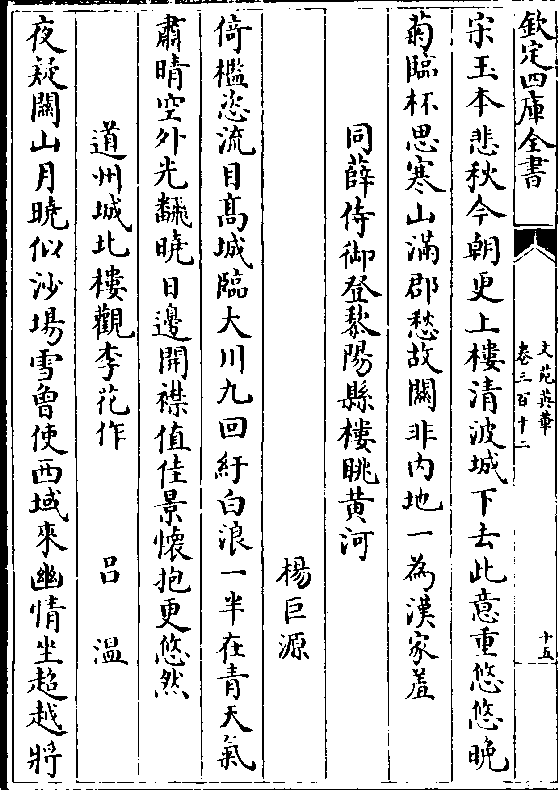 欽定四庫全書
文苑英華
卷三百十二
十五
宋玉本悲秋今朝更上樓清波城下去此意重悠悠晚
菊臨杯思寒山滿郡愁故關非内地一為漢家羞
同薛侍御登黎陽縣樓眺黄河
楊巨源
倚檻恣流目高城臨大川九回紆白浪一半在青天氣
肅晴空外光翻曉日邊開襟值佳景懐抱更悠然
道州城北樓觀李花作 吕温
夜疑關山月曉似沙場雪曾使西域來幽情坐超越將